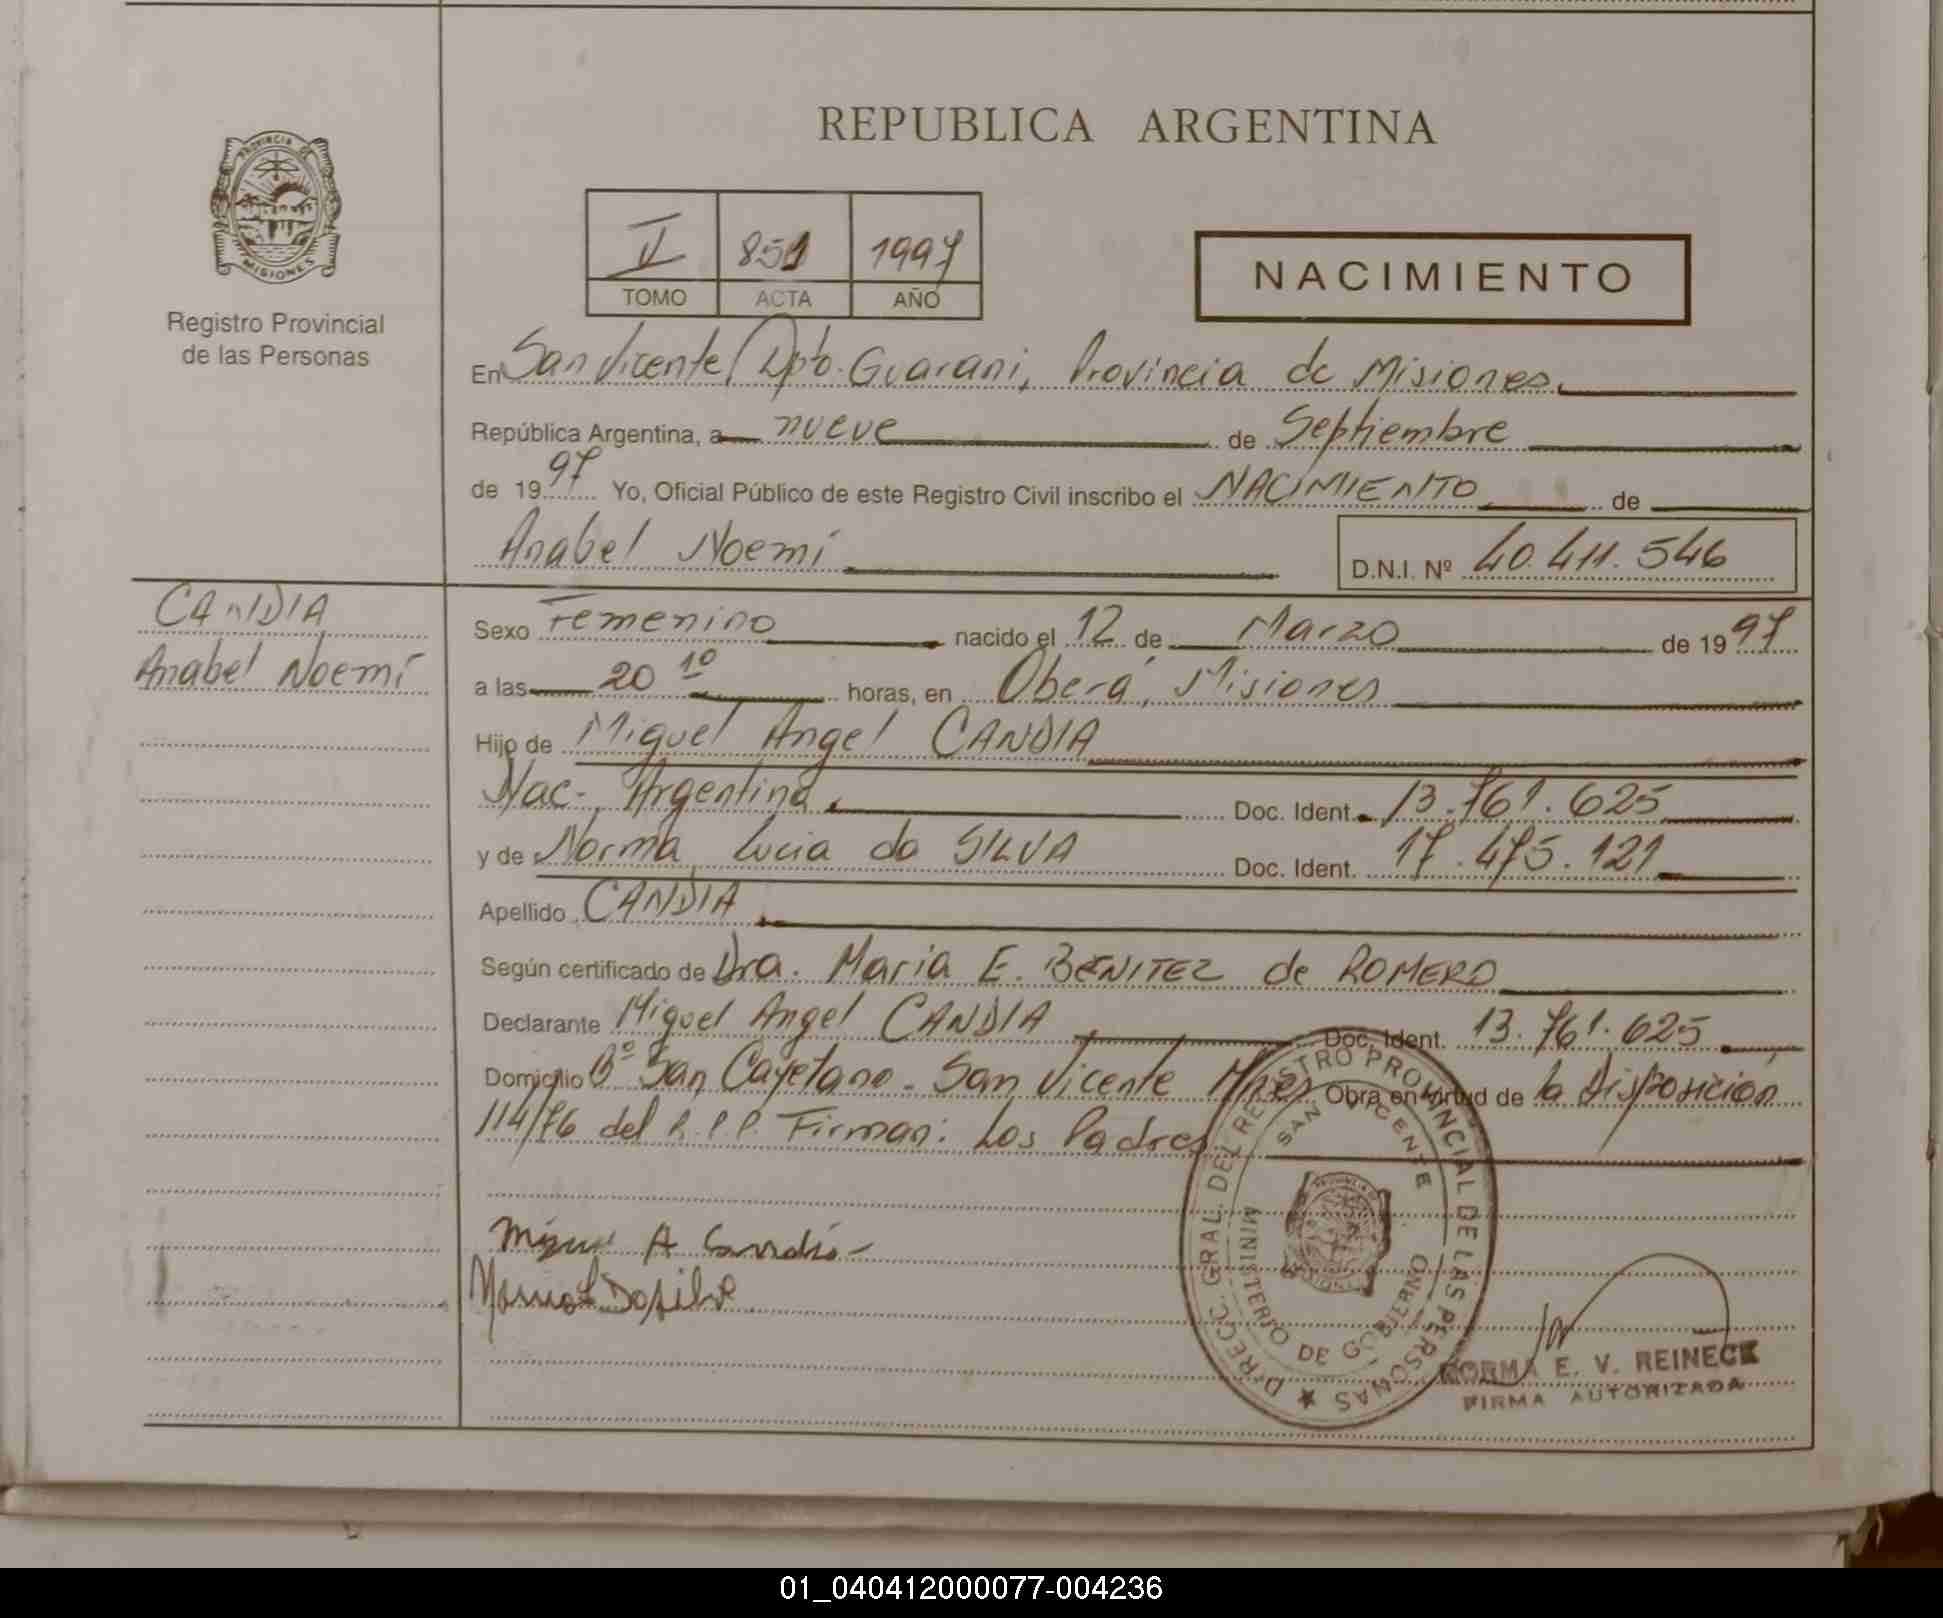 REPUBLICA ARGENTINA
PROVINCIA DE
MISIONES
Registro Provincial
de las Personas
V 851 1997
TOMO ACTA AÑO
NACIMIENTO
En San Vicente, Dpto. Guarani, Provincia de Misiones.
República Argentina, a nueve de Septiembre
de 1997 Yo, Oficial Público de este Registro Civil inscribo el NACIMIENTO de
Anabel Noemí D.N.I. Nº 40.411.546
CANDIA
Anabel Noemí
Sexo Femenino nacido el 12 de Marzo de 1997
a las 20 10 horas, en Oberá, Misiones
Hijo de Miguel Angel CANDIA
Nac. Argentina. Doc. Ident. 13.761.625
y de Norma Lucia da SILVA Doc. Ident. 17.475.121
Apellido CANDIA
Según certificado de Dra. Maria E. BENITEZ de ROMERO
Declarante Miguel Angel CANDIA Doc. Ident. 13.761.625
Domicilio Bº San Cayetano - San Vicente Mnes Obra en virtud de la Disposición
114/76 del R.P.P. Firman: Los Padres
Miguel A Candia
DIRECC. GRAL. DEL REGISTRO PROVINCIAL DE LAS PERSONAS
SAN VICENTE
MINISTERIO DE GOBIERNO
NORMA E. V. REINECK
FIRMA AUTORIZADA
01_040412000077-004236